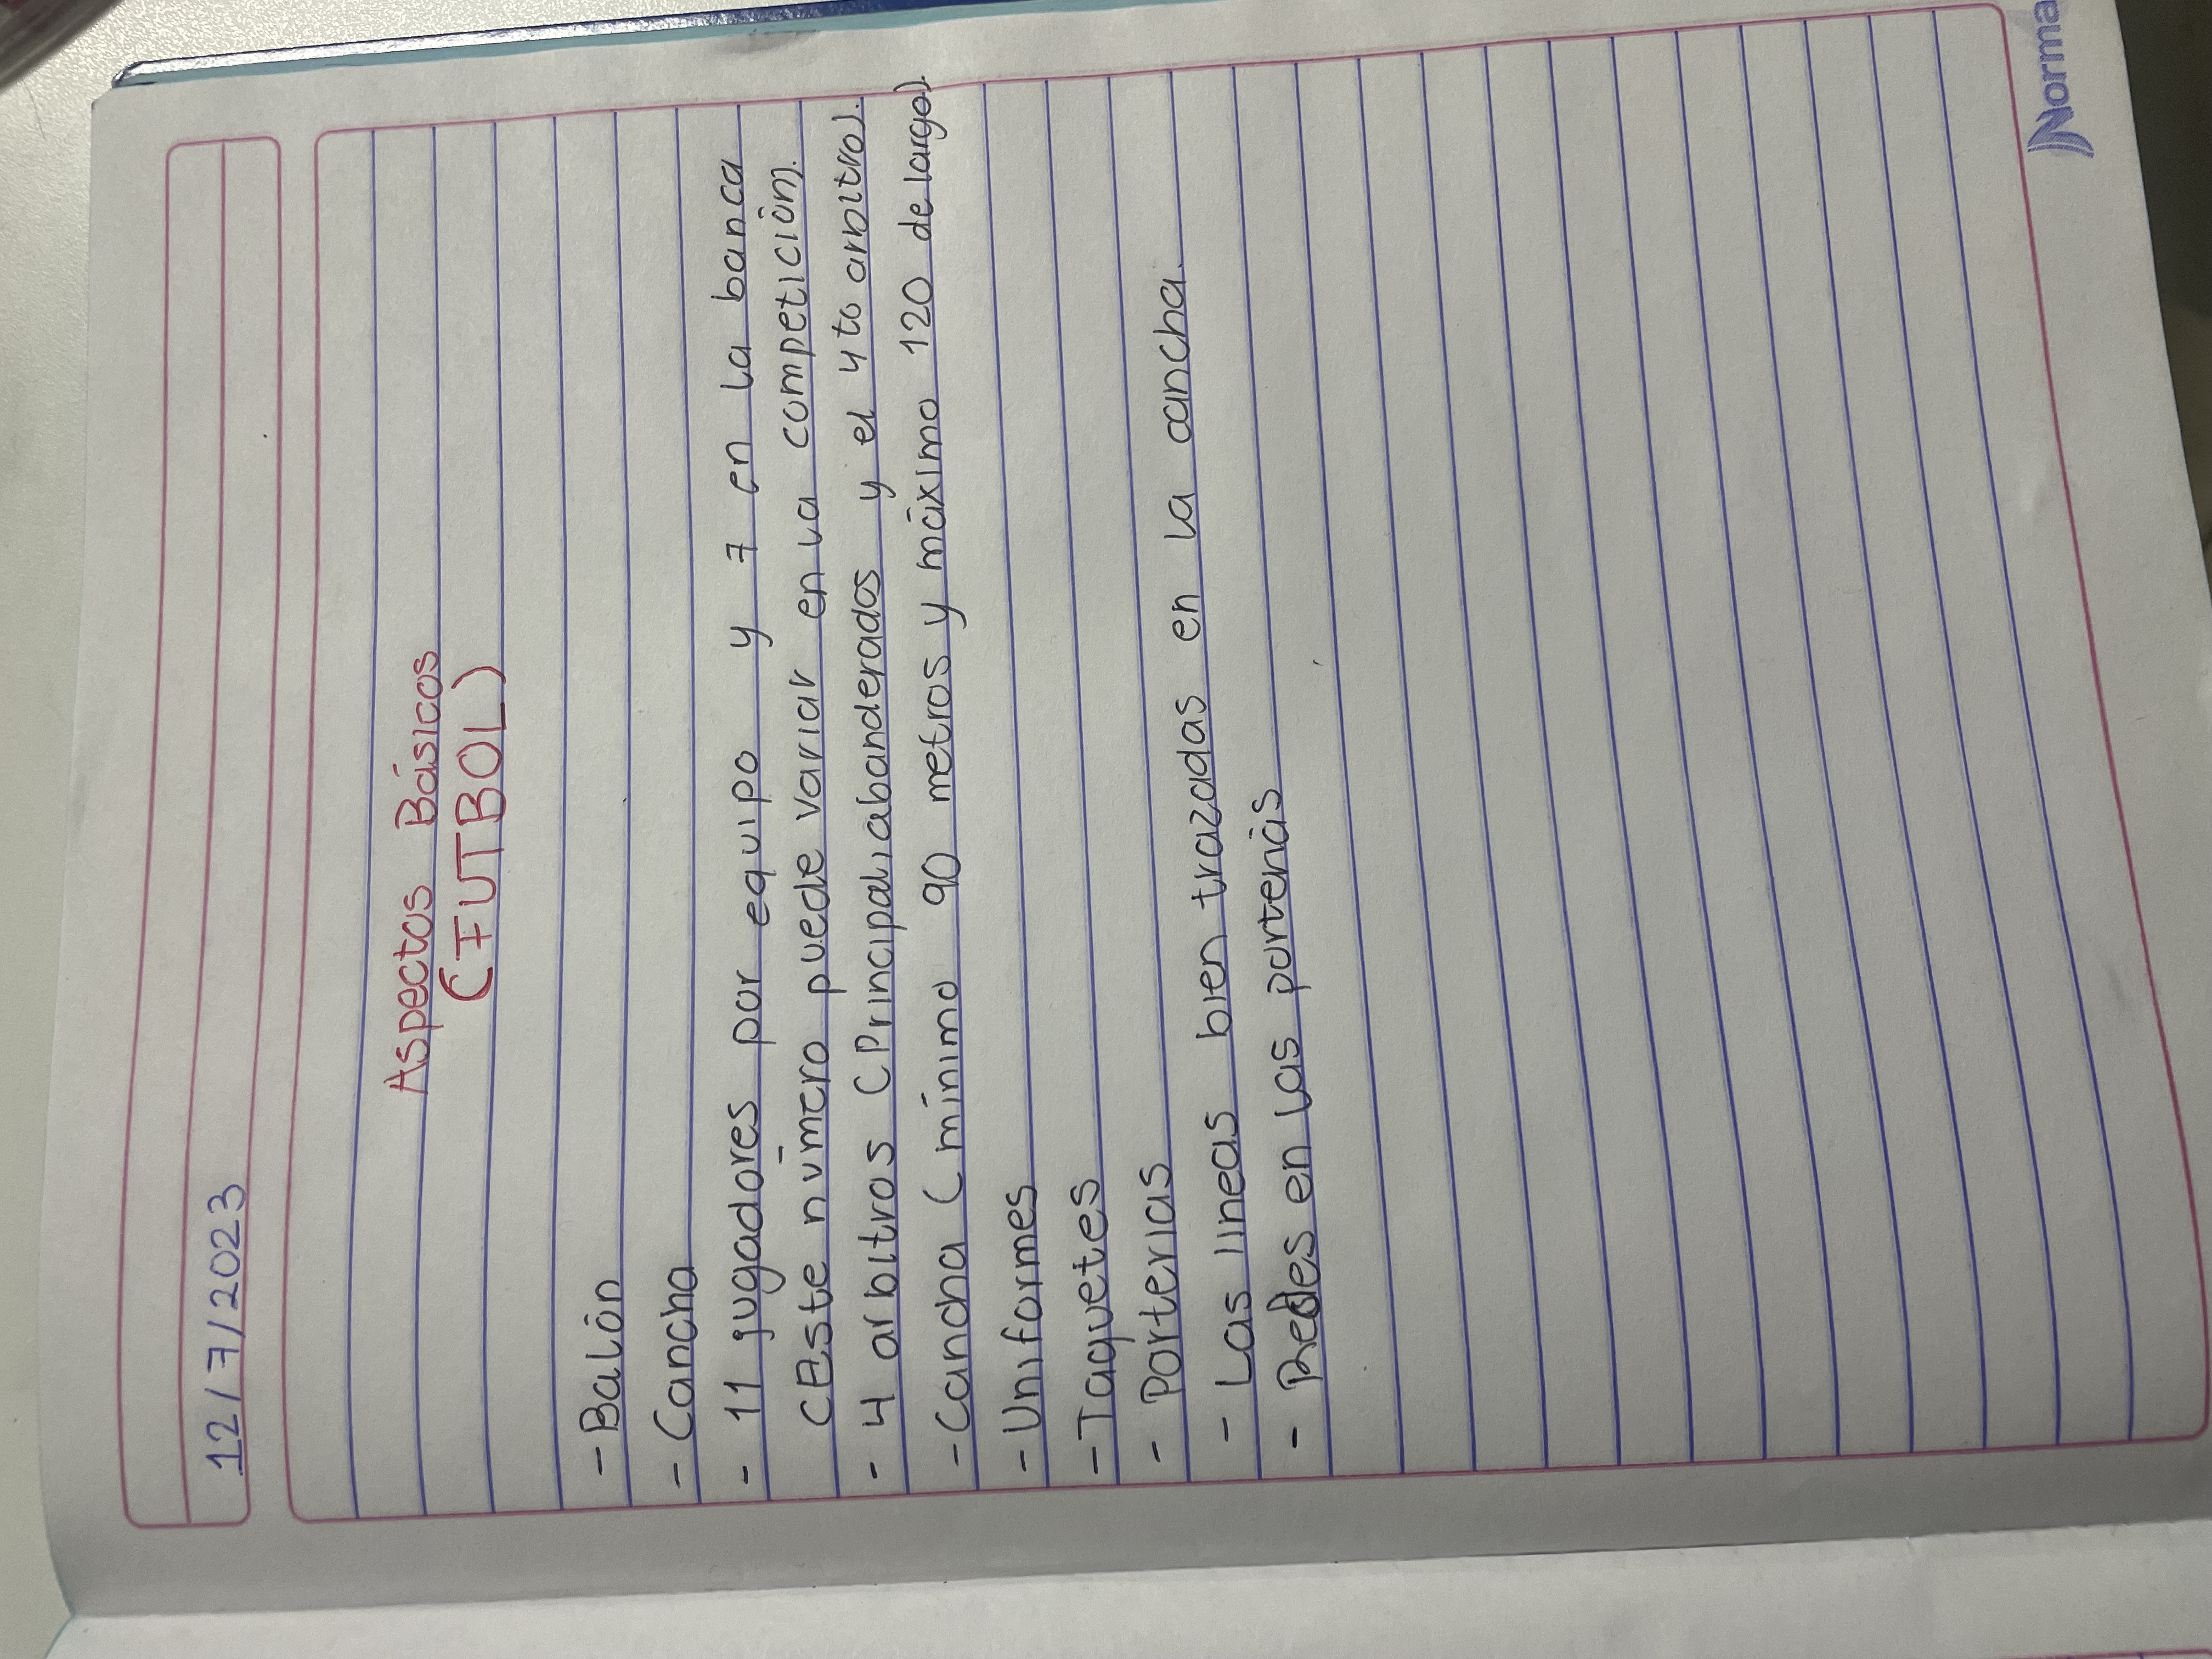 12/7/2023
Aspectos Básicos
(FUTBOL)
- Balón
- Cancha
- 11 jugadores por equipo y 7 en la banca
(Este número puede variar en la competición).
- 4 arbitros (Principal, abanderados y el 4to arbitro).
- Cancha (mínimo 90 metros y máximo 120 de largo).
- Uniformes
- Taquetes
- Porterias
- Las lineas bien trazadas en la cancha.
- Redes en las porterias
Norma